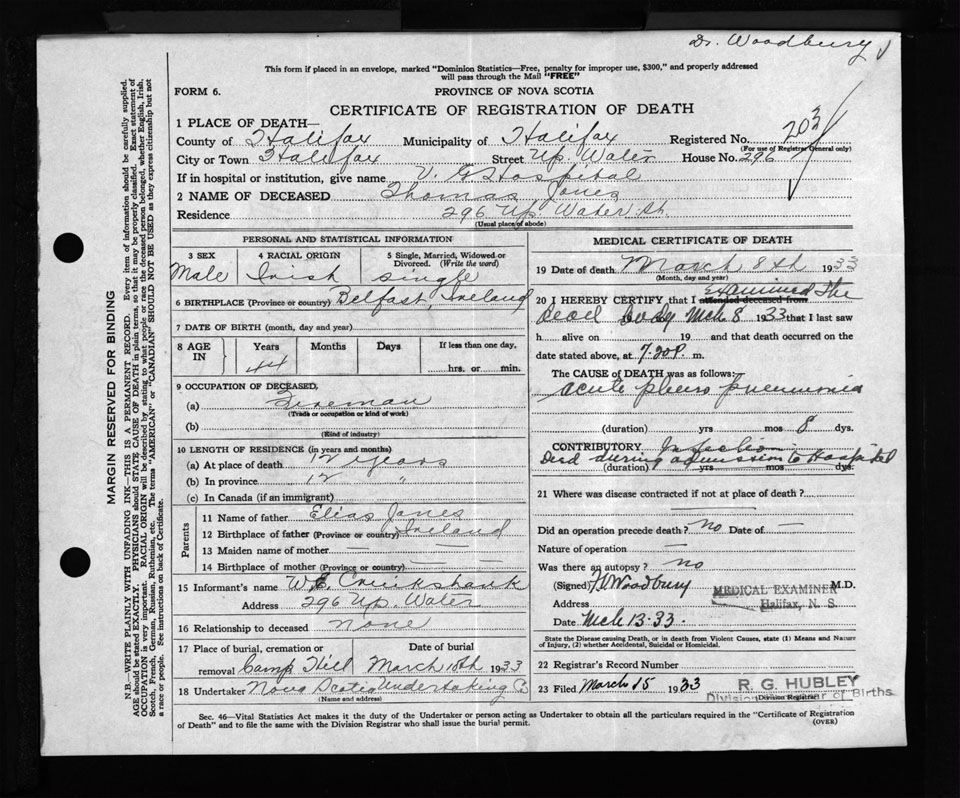 Dr. Woodbury
This form if placed in an envelope, marked "Dominion Statistics—Free, penalty for improper use, $300," and properly addressed
will pass through the Mail "FREE"
FORM 6.
PROVINCE OF NOVA SCOTIA
CERTIFICATE OF REGISTRATION OF DEATH
1 PLACE OF DEATH—
County of Halifax Municipality of Halifax Registered No. 203
(For use of Registrar General only)
City or Town Halifax Street Up. Water House No. 296
If in hospital or institution, give name V. G Hospital
2 NAME OF DECEASED Thomas Jones
Residence 296 Up Water St.
(Usual place of abode)
PERSONAL AND STATISTICAL INFORMATION
3 SEX 4 RACIAL ORIGIN 5 Single, Married, Widowed or
Divorced. (Write the word)
Male Irish single
6 BIRTHPLACE (Province or country) Belfast, Ireland
7 DATE OF BIRTH (month, day and year)
8 AGE IN Years Months Days If less than one day,
44 hrs. or min.
9 OCCUPATION OF DECEASED,
(a) Fireman
(Trade or occupation or kind of work)
(b)
(Kind of industry)
10 LENGTH OF RESIDENCE (in years and months)
(a) At place of death 12 years
(b) In province 12 "
(c) In Canada (if an immigrant)
Parents
11 Name of father Elias Jones
12 Birthplace of father (Province or country) Ireland
13 Maiden name of mother — —
14 Birthplace of mother (Province or country) — —
15 Informant's name Cruikshank
Address 296 Up. Water
16 Relationship to deceased none
17 Place of burial, cremation or Date of burial
removal Camp Hill March 1933
18 Undertaker Nova Scotia Undertaking Co
(Name and address)
MEDICAL CERTIFICATE OF DEATH
19 Date of death March 8th 1933
(Month, day and year)
20 I HEREBY CERTIFY that I attended deceased from examined the
dead body Mch 8 1933 that I last saw
h alive on 19 and that death occurred on the
date stated above, at 7.20 P. m.
The CAUSE of DEATH was as follows:
acute pleuro pneumonia
(duration) yrs mos 8 dys.
CONTRIBUTORY Infection
Died during admission to Hospital
(duration) yrs mos dys.
21 Where was disease contracted if not at place of death?
—
Did an operation precede death? no Date of —
Nature of operation —
Was there an autopsy? no
(Signed) Woodbury M.D.
MEDICAL EXAMINER
Address Halifax, N. S.
Date Mch 13-33.
State the Disease causing Death, or in death from Violent Causes, state (1) Means and Nature
of Injury, (2) whether Accidental, Suicidal or Homicidal.
22 Registrar's Record Number
23 Filed March 15 1933 R. G. HUBLEY
Division Registrar of Births
(Division Registrar)
Sec. 46—Vital Statistics Act makes it the duty of the Undertaker or person acting as Undertaker to obtain all the particulars required in the "Certificate of Registration
of Death" and to file the same with the Division Registrar who shall issue the burial permit. (OVER)
MARGIN RESERVED FOR BINDING
N.B.—WRITE PLAINLY WITH UNFADING INK—THIS IS A PERMANENT RECORD. Every item of information should be carefully supplied.
AGE should be stated EXACTLY. PHYSICIANS should STATE CAUSE OF DEATH in plain terms, so that it may be properly classified. Exact statement of
OCCUPATION is very important. RACIAL ORIGIN will be described by stating to what people or race the deceased person belonged, whether English, Irish,
Scotch, French, German, Russian, Ruthenian, etc. The terms "AMERICAN" or "CANADIAN" SHOULD NOT BE USED as they express citizenship but not
a race or people. See instructions on back of Certificate.